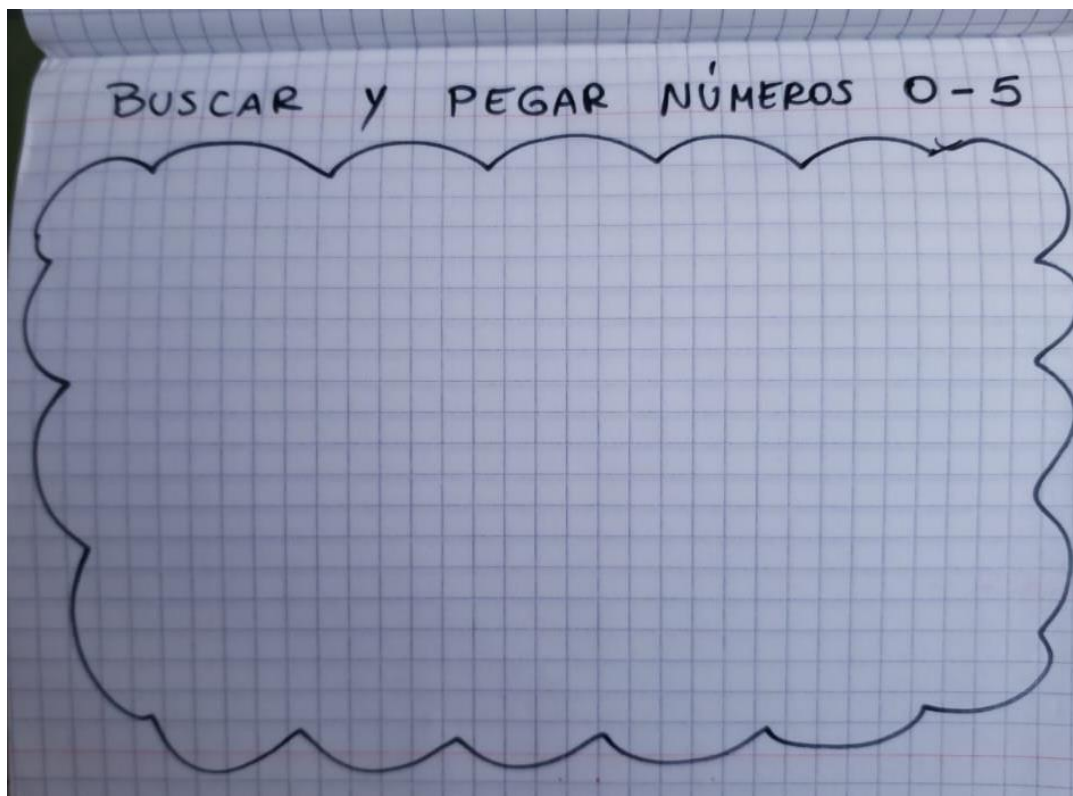 BUSCAR Y PEGAR NÚMEROS 0-5